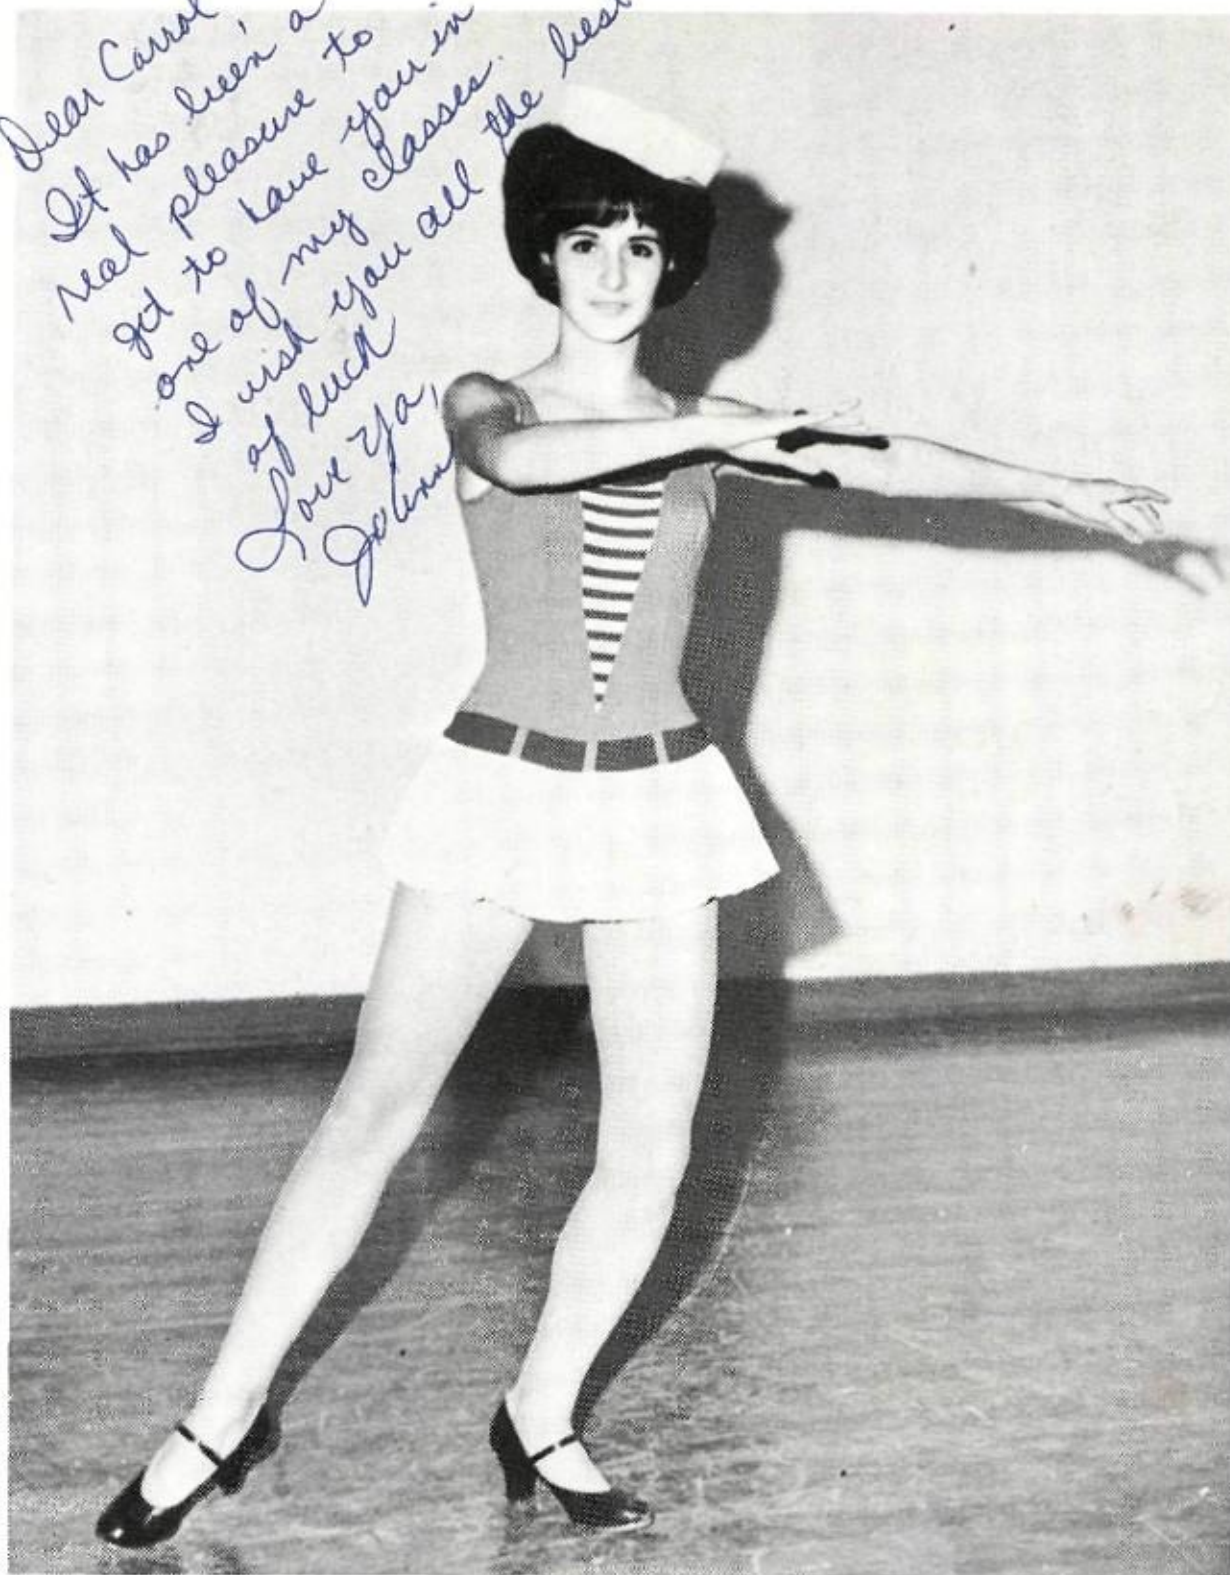 Dear Carrol,
It has been a
real pleasure to
get to have you in
one of my classes.
I wish you all the best
of luck
Love Ya,
JoAnn